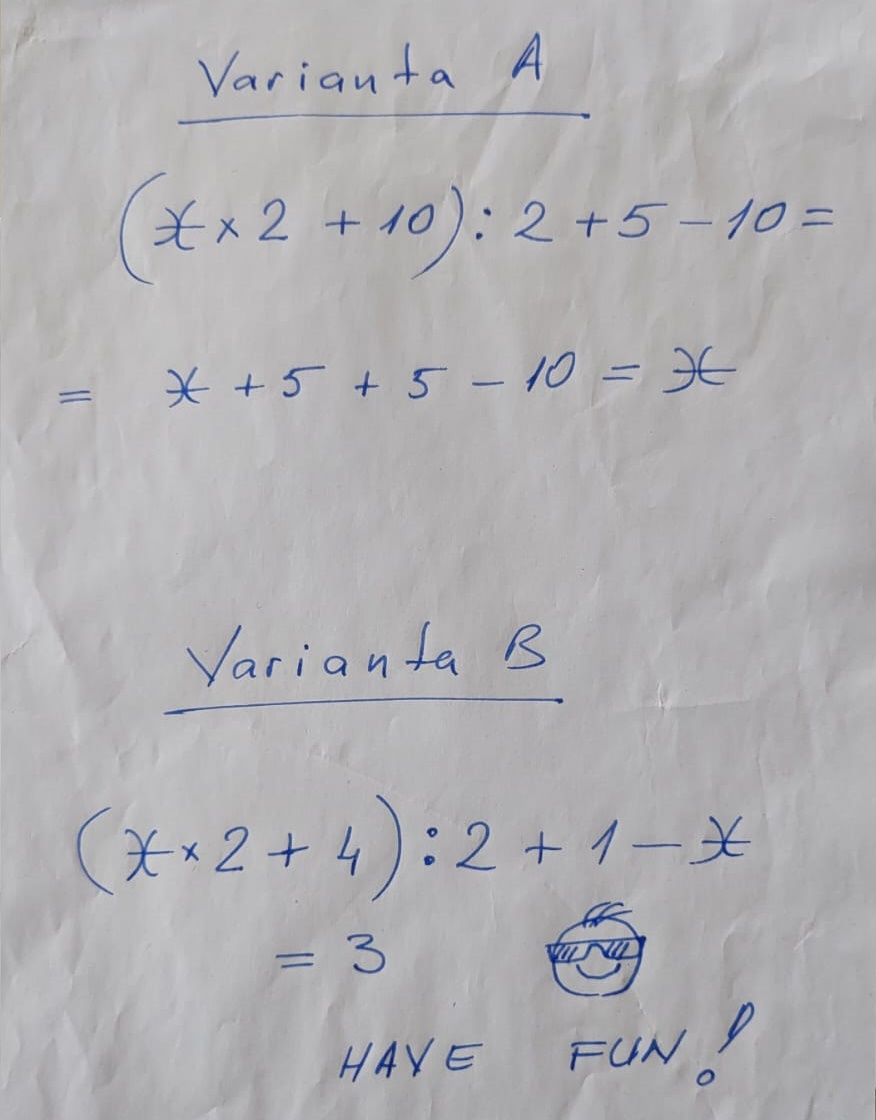 Varianta A
(x × 2 + 10) : 2 + 5 - 10 =
= x + 5 + 5 - 10 = x
Varianta B
(x × 2 + 4) : 2 + 1 - x
= 3
HAVE FUN!